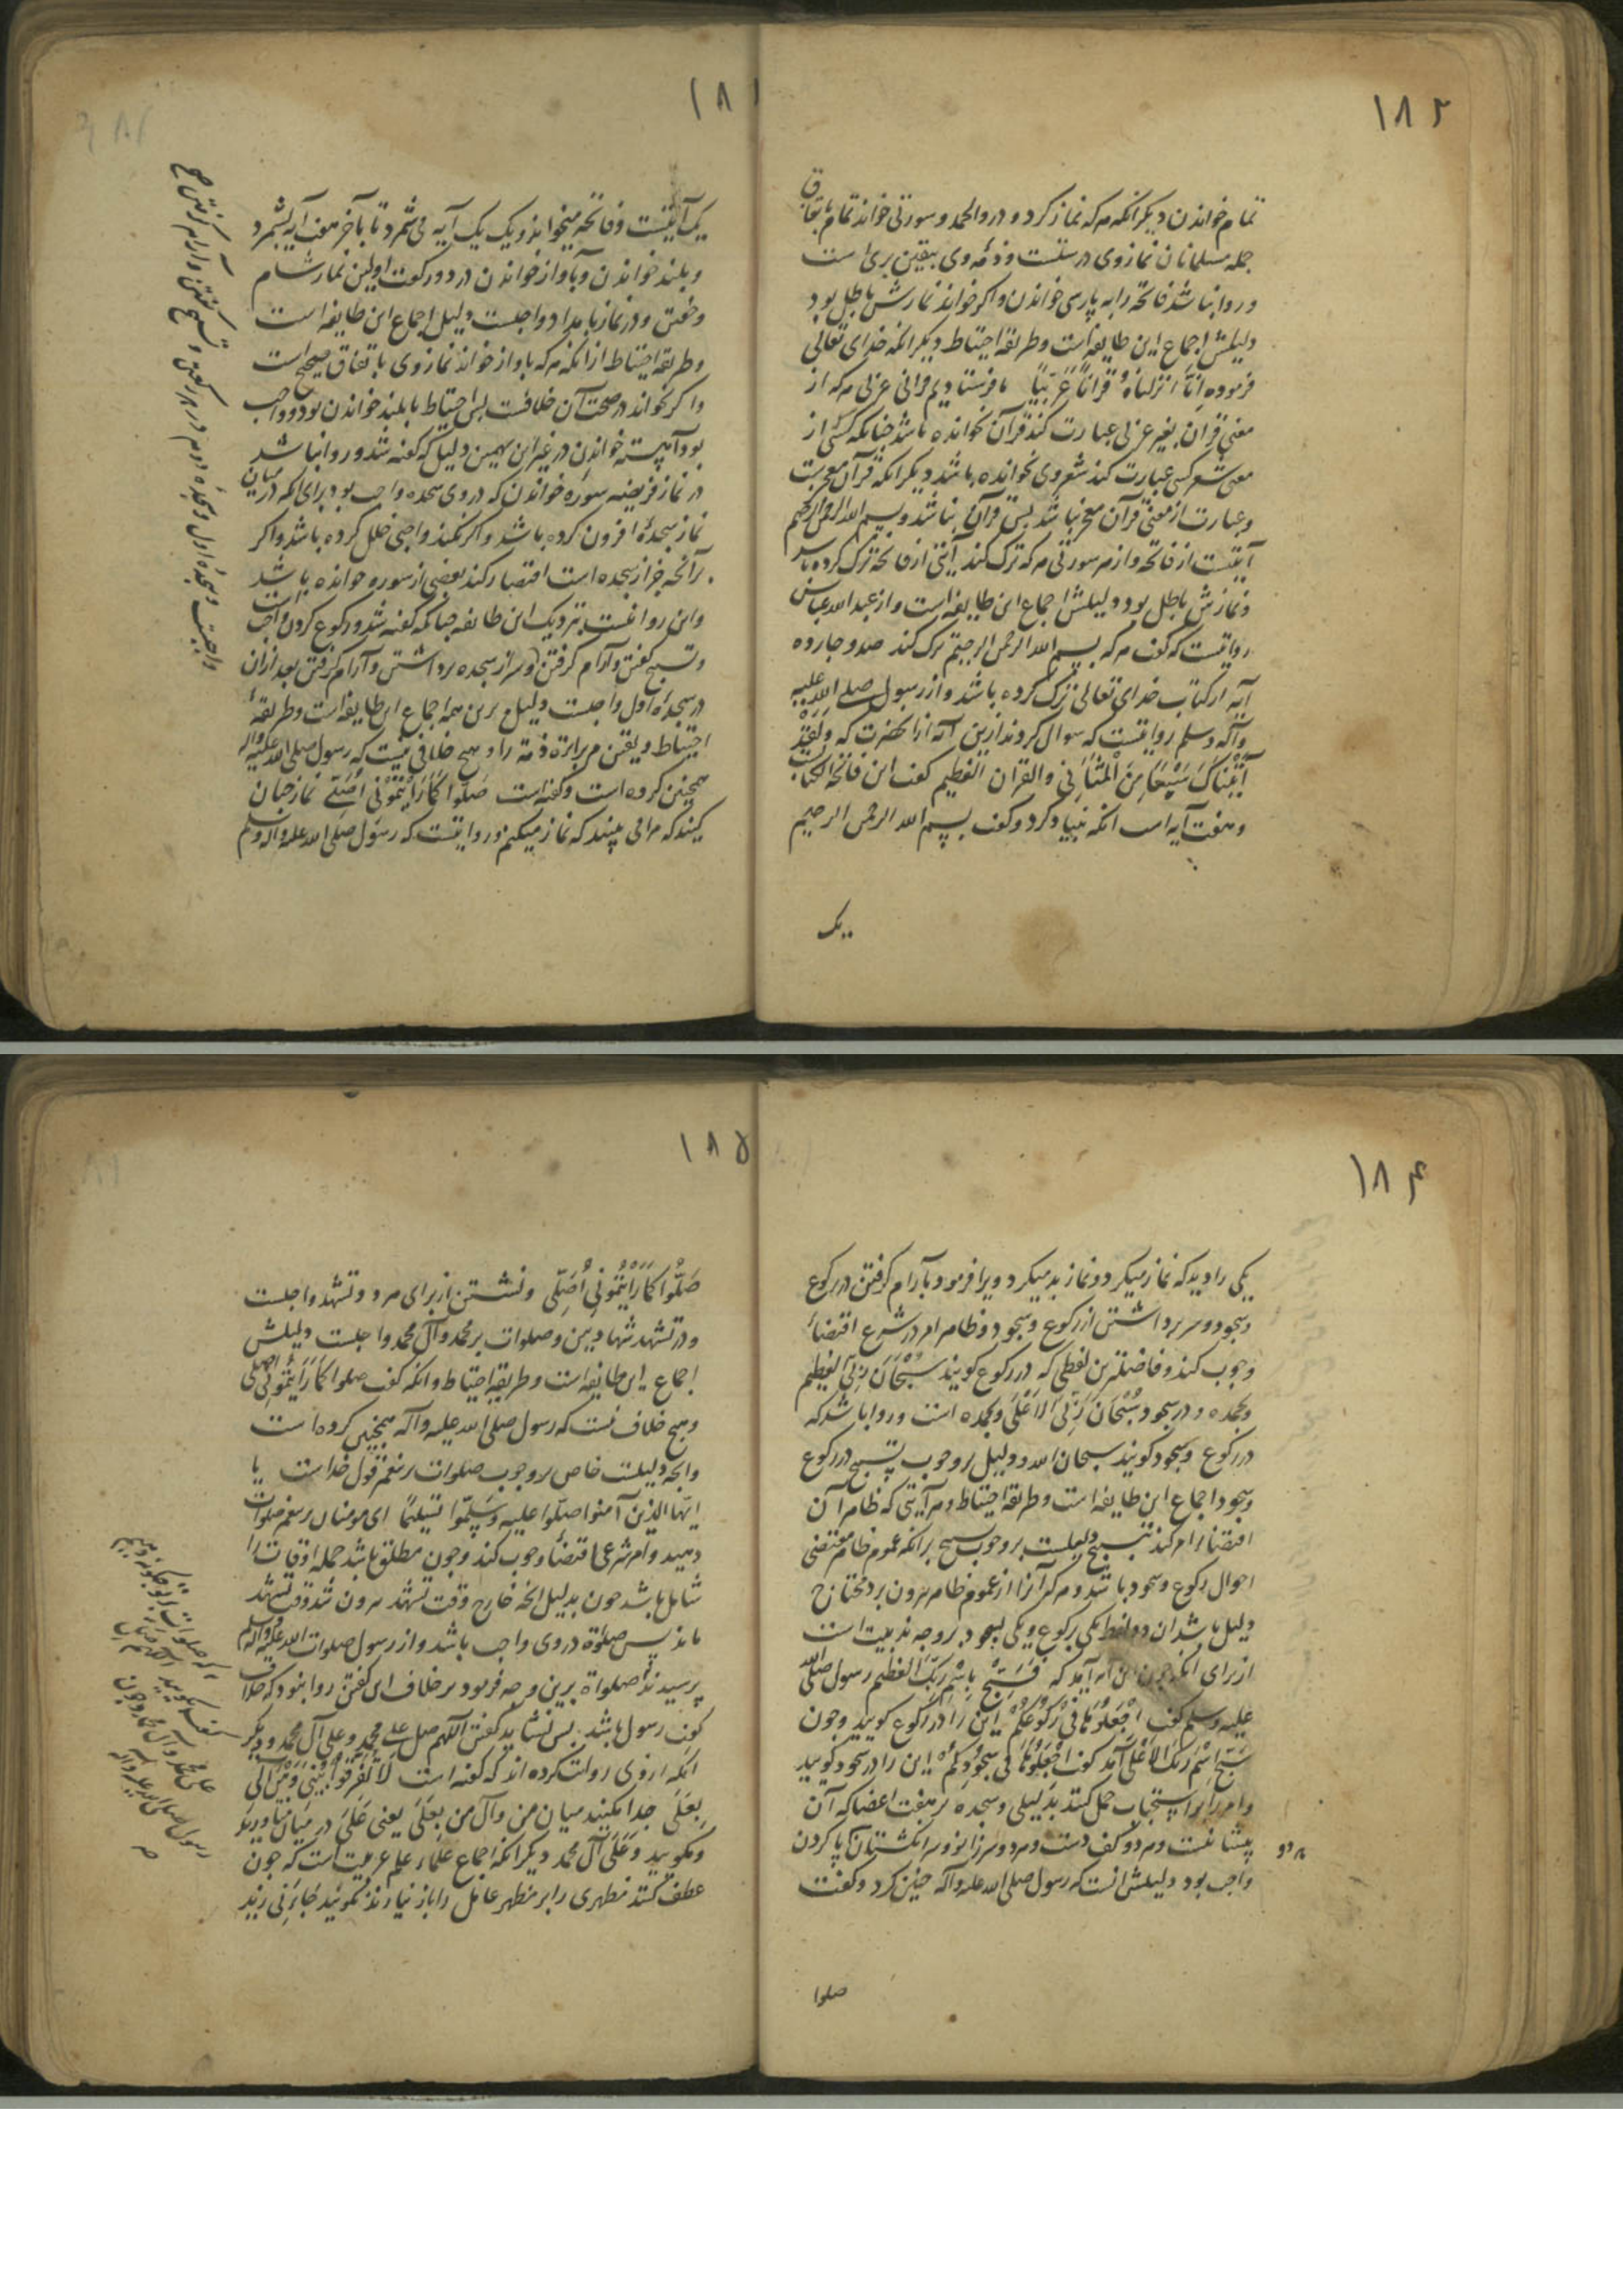 ۱۸۲
تمام خواندن دیکر انکه هرکه نماز کرد و در و الحمد و سورتی خواند تمام باتفاق
جمله مسلمانان نماز وی درستست و ذمّه وی بیقین بری است
و روا نباشد فاتحه را به پارسی خواندن و اکر خواند نمازش باطل بود
دلیلش اجماع این طایفه است و طریقه احتیاط دیکر انکه خدای تعالی
فرموده اِنّا انزلناهُ قُراناً عَرَبیّاً ما فرستادیم قرانی عربی هرکه از
معنی قران بغیر عربی عبارت کند قرآن نخوانده باشد جنانکه کسی از
معنی شعر کسی عبارت کند شعر وی نخوانده باشد دیکر انکه قرآن معجزست
و عبارت از معنی قرآن معجز نباشد بس قرآن نباشد و بسم الله الرحمن الرحیم
آیتیست از فاتحه و از هر سورتی هرکه ترک کند آیتی از فاتحه ترک کرده باشد
و نمازش باطل بود دلیلش اجماع این طایفه است و از عبدالله عباس
روایتست که کفت هرکه بسم الله الرحمن الرحیم ترک کند صد و جارده
آیه از کتاب خدای تعالی ترک کرده باشد و از رسول صلی الله علیه
و آله و سلم روایتست که سوال کردند ازین آیه از آنحضرت که وَلَقَدْ
آتَیْناکَ سَبْعاً مِنَ الْمَثانی والقران العظیم کفت این فاتحة الکتابست
و هفت آیه است انکه بنیاد کرد و کفت بسم الله الرحمن الرحیم
یک
۱۸
یک آیتیست و فاتحه میخواند و یک یک آیه می شمرد تا بآخر هفت آیه بشمرد
و بلند خواندن و بآواز خواندن در دو رکعت اولین نماز شام
و خفتن و در نماز بامداد واجبست دلیل اجماع این طایفه است
و طریقه احتیاط از انکه هرکه باواز خواند نماز وی باتفاق صحیح است
و اکر نخواند در صحت آن خلافست بس احتیاط با بلند خواندن بود و واجب
بود آهسته خواندن در غیر این بهمین دلیل که کفته شد و روا نباشد
در نماز فریضه سوره خواندن که در وی سجده واجب بود برای انکه در میان
نماز سجدهٔ افزون کرده باشد و اکر نکند واجبی خلل کرده باشد و اکر
بر آنجه جز از سجده است اقتصار کند بعضی از سوره خوانده باشد
و این روا نیست نزدیک این طایفه جنانکه کفته شد و رکوع کردن واجبست
و تسبیح کفتن و آرام کرفتن و سر از سجده برداشتن و آرام کرفتن بعد ازان
در سجدهٔ اول واجبست دلیل برین همه اجماع این طایفه است و طریقهٔ
احتیاط و یقین مر براءة ذمة را و هیج خلافی نیست که رسول صلی الله علیه و اله
همجنین کرده است و کفته است صَلّوا کَما رَاَیْتُمُونی اُصَلّی نماز جنان
کنید که مرا می بینید که نماز میکنم و روایتست که رسول صلی الله علیه و اله و سلم
واجبست و سجدهٔ اول و سجدهٔ دوم در هر رکعتی و تسبیح کفتن و آرام کرفتن صح
۱۸۴
یکی را دید که نماز میکرد و نماز بد میکرد ویرا فرمود بآرام کرفتن در رکوع
و سجود و سر برداشتن از رکوع و سجود و ظاهر امر در شرع اقتضاء
وجوب کند و فاضلترین لفظی که در رکوع کویند سُبْحانَ رَبّیَ العظیم
و بحمده و در سجود سُبْحانَ رَبّیَ الاَعْلی وبحمده است و روا باشد که
در رکوع و سجود کویند سبحان الله و دلیل بر وجوب تسبیح در رکوع
و سجود اجماع این طایفه است و طریقه احتیاط و هر آیتی که ظاهر آن
اقتضاء امر کند بتسبیح دلیلست بر وجوب تسبیح برانکه عموم ظاهر مقتضی
احوال رکوع و سجود باشد و هرکه آنرا از عموم ظاهر بیرون برد محتاج
دلیل باشد ان دو لفظ یکی برکوع و یکی بسجود بر وجه ندبیت است
از برای انکه جون این آیه آمد که فَسَبِّحْ بِاسْمِ رَبِّکَ العَظیم رسول صلی الله
علیه و سلم کفت اِجْعَلُوها فی رُکُوعِکُمْ این را در رکوع کویید و جون
سَبِّحِ اسْمَ رَبِّکَ الاَعْلی آمد کفت اِجْعَلُوها فی سُجُودِکُمْ این را در سجود کویید
و امر را بر استحباب حمل کنند بدلیلی و سجده بر هفت اعضا که آن
پیشانیست و هر دو کف دست و هر دو سر زانو و سر انکشتان پا کردن
هر دو
واجب بود دلیلش انست که رسول صلی الله علیه و آله جنین کرد و کفت
صلوا
۱۸۵
صَلُّوا کَما رَاَیْتُمُونی اُصَلّی و نشستن از برای هر دو تشهد واجبست
و در تشهد شهادتین و صلوات بر محمد و آل محمد واجبست دلیلش
اجماع این طایفه است و طریقه احتیاط و انکه کفت صلوا کَما رَاَیْتُمُونی اُصلی
و هیج خلاف نیست که رسول صلی الله علیه و آله همجنین کرده است
و انجه دلیلست خاص بر وجوب صلوات بر پیغمبر قول خداست یا
ایّها الذین آمنوا صلّوا علیه و سَلِّمُوا تَسْلیماً ای مومنان بر پیغمبر صلوات
دهید و امر شرعی اقتضاء وجوب کند و جون مطلق باشد جمله اوقات را
شامل باشد جون بدلیل انجه خارج وقت تشهد بیرون شد وقت تشهد
ماند پس صلوة در وی واجب باشد و از رسول صلوات الله علیه و اله و سلم
پرسیدند صلواة برین وجه فرمود بر خلاف این کفتن روا نبود که خلاف
کفت رسول باشد بس نشاید کفتن اللهم صل علی محمد و علی آل محمد و دیکر
انکه از وی روایت کرده اند که کفته است لا تُفَرِّقُوا بَیْنی وَبَیْنَ آلی
بِعَلی جدا مکنید میان من و آل من بِعَلی یعنی عَلی در میان میاورید
و مکویید و عَلی آل محمد دیکر انکه اجماع علماء علم عربیت است که جون
عطف کنند مظهری را بر مظهر عامل را باز نیارند نکویند جاءَنی زید